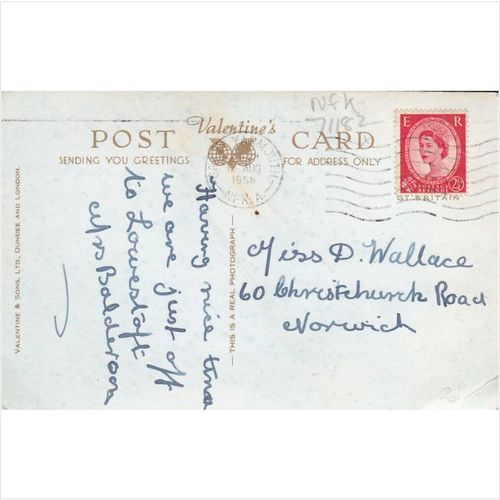 Nfk
71182
Valentine's
POST CARD
SENDING YOU GREETINGS
FOR ADDRESS ONLY
YARMOUTH
AUG
1956
NFK. A
E R
POSTAGE
REVENUE
2½
GT BRITAIN
VALENTINE & SONS, LTD., DUNDEE AND LONDON.
Having nice time
we are just off
to Lowestoft
Mrs Balderson
— THIS IS A REAL PHOTOGRAPH —
Miss D. Wallace
60 Christchurch Road
Norwich